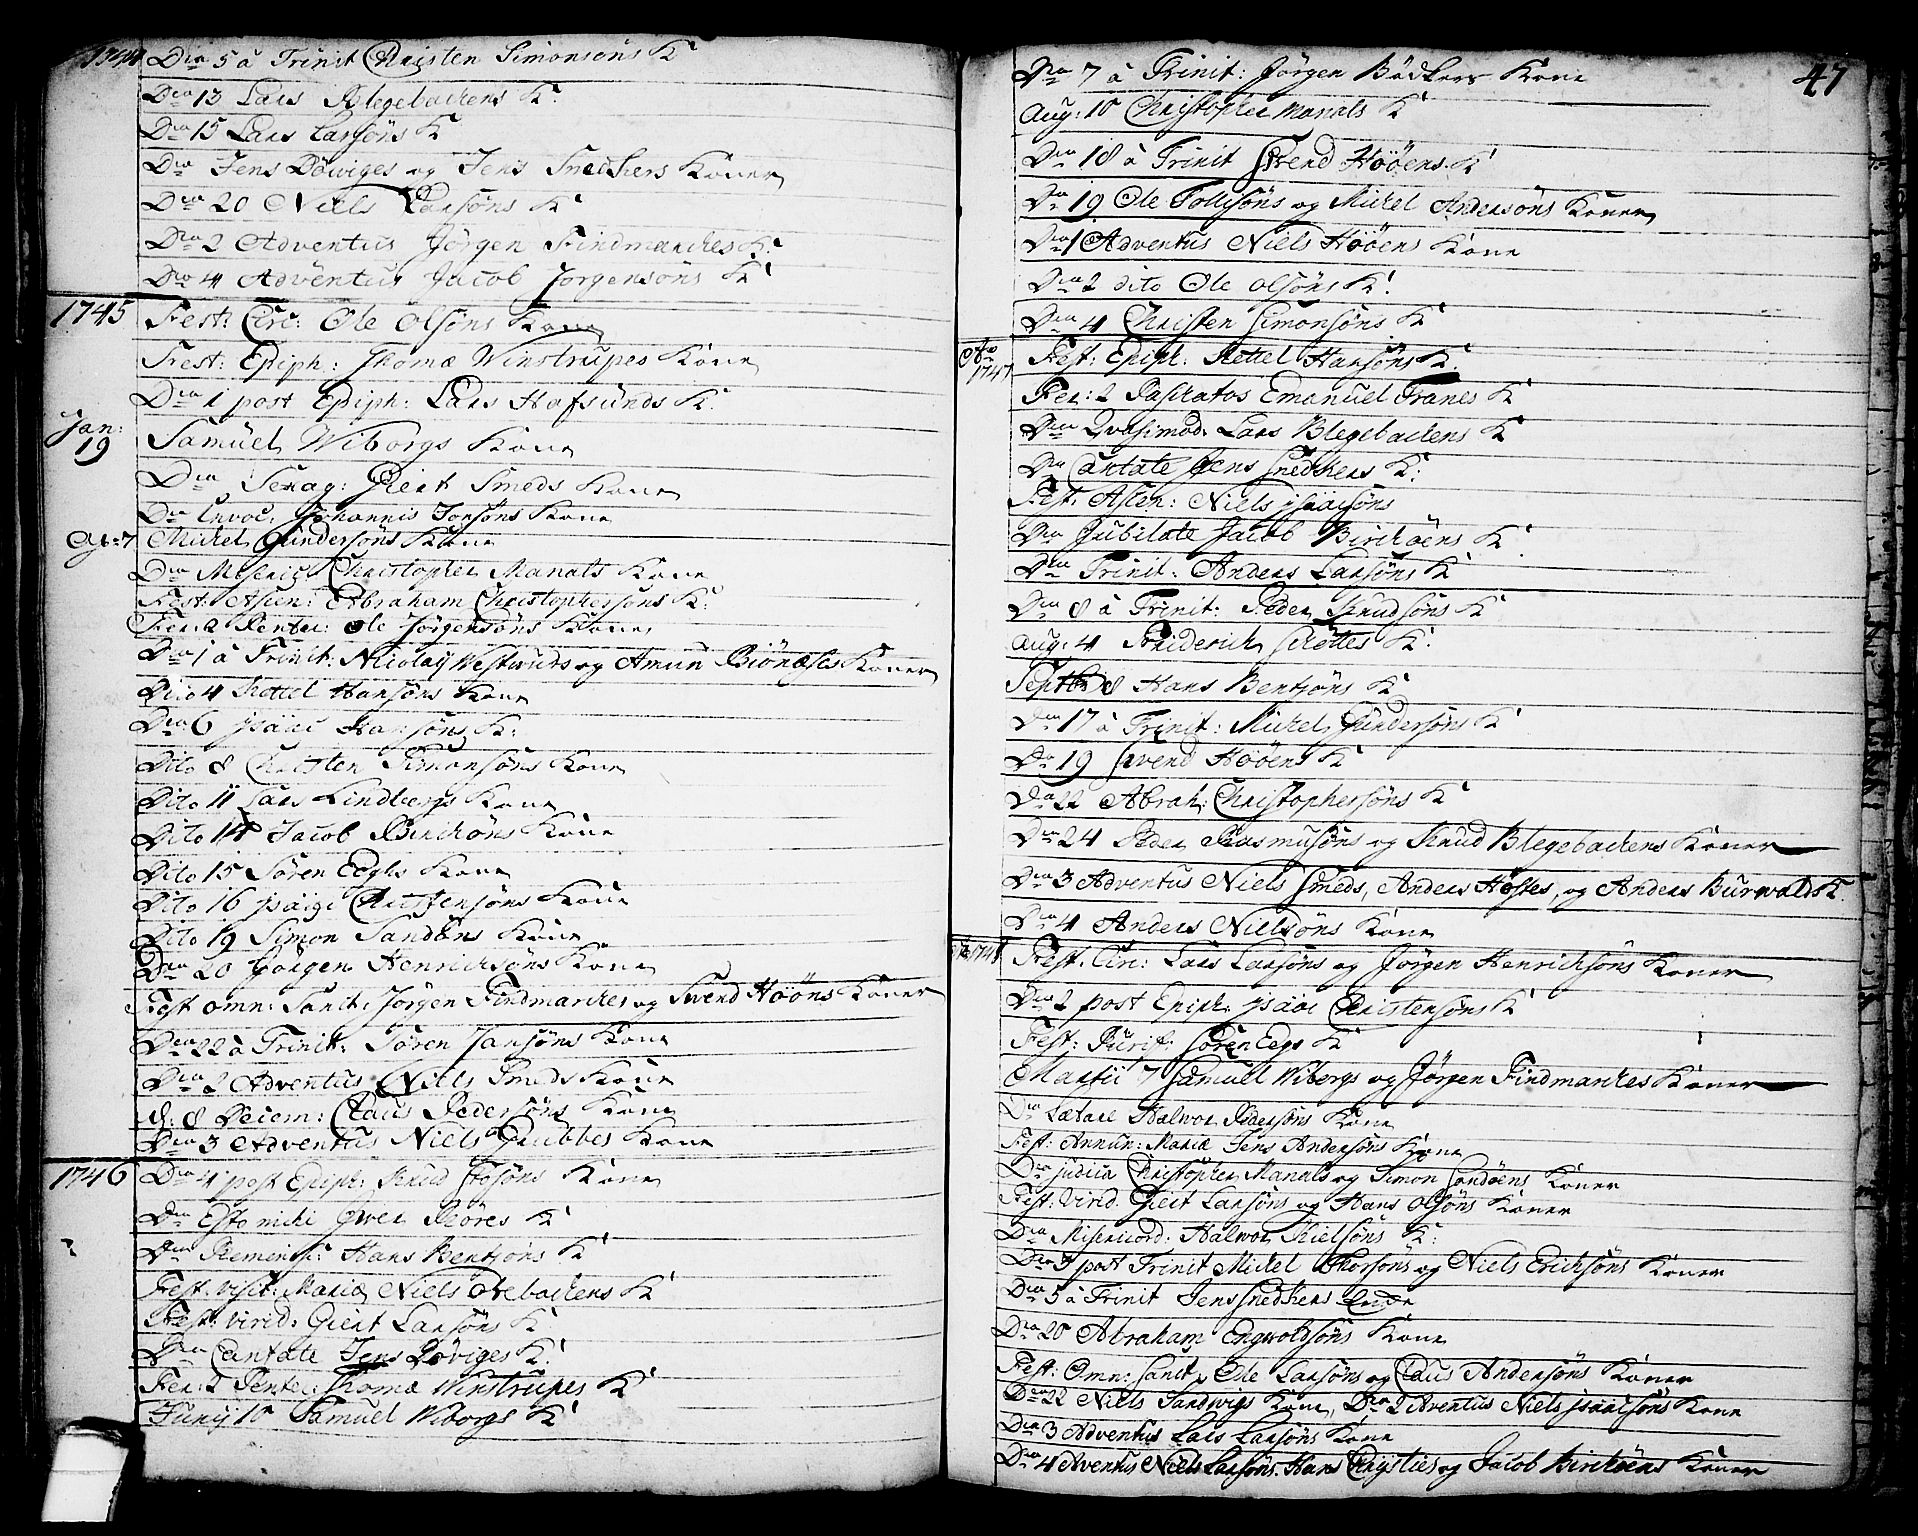 1744 Dca 5 à Trinit Christen Simonsøns K
Dca 13 Lars Blegebackens K:
Dca 15 Lars Larsøns K
Dca Jens Döviges og Jens Snedkers Koner
Dca 20 Niels Larsøns K
Dca 2 Adventus Jörgen Findmarckes K:
Dca 4 Adventus Jacob Jörgensöns K
1745 Fest: Circ: Ole Olsöns Kone
Fest: Epiph: Thomæ Winstrupes Kone
Dca 1 post Epiph: Lars Hafsunds K.
Jan: 19 Samüel Wiborgs Kone
Dca Sexag: Giert Smeds Kone
Dca Invoc: Johannis Jonsöns Kone
Michel Gundersöns Kone
Dca Miseric Christopher Manals Kone
Fest: Ascen: Abraham Christophersöns K:
Fer: 2 Pentec: Ole Jörgensöns Kone
Dca 1 à Trinit: Nicolay Westwuds og Amun Biönæses Koner
Dito 4 Kettel Hansöns Kone
Dca 6 Isaac Hansöns K:
Dito 8 Christen Simonsöns Kone
Dito 11 Lars Lindbergs Kone
Dito 14 Jacob Birchöns Kone
Dito 15 Sören Eeghs Kone
Dito 16 Isaac Christensöns Kone
Dito 19 Simon Sandöns Kone
Dca 20 Jörgen Henrichsöns Kone
Fest omn: Sanct: Jörgen Findmarckes og Swend Hööns Koner
Dca 22 à Trinit: Sören Jansöns Kone
Dca 2 Adventus Niels Smeds Kone
d: 8 Decem: Claus Pedersöns Kone
Dca 3 Adventus Niels Grubbes Kone
1746 Dca 4 post Epiph: Knud Kone
Dca Esto michi Iver Röres K
Dca Reminisc: Hans Bentsöns K
Fest. visit: Mariæ Niels Ovebackens K
Fest: virid: Giert Larsöns K
Dca Cantate Jens Döviges K:
Fer: 2 Pentec: Thomæ Winstrupes K
Junij 10 Samuel Wiborgs K
47
Dca 7 à Trinit: Jörgen Bödkers Kone
Aug: 10 Christopher Manals K
Dca 18 à Trinit Swend Hööens K
Dca 19 Ole Tollisöns og Michel Andersöns Koner
Dca 1 Adventus Niels Hööens Kone
Dca 2 dito Ole Olsöns K:
Dca 4 Christen Simonsöns K
Ao 1747 Fest: Epiph: Kettel Hansöns K.
Fer: 2 Paschatos Emanuel Franes K
Dca Qvasimod: Lars Blegebackens K
Dca Cantate Jens Snedkers K:
Fest: Ascen: Niels Isaacsöns
Dca Jubilate Jacob Birchöens K
Dca Trinit: Anders Larsöns K
Dca 8 à Trinit: Peder Knudsöns K
Aug: 4 Friderich Skottes K:
Septbr 8 Hans Bentsöns K
Dca 17 à Trinit: Michel Gundersöns K
Dca 19 Swend Hööens K
Dca 22 Abrah: Christophersöns K
Dca 24 Peder Rasmusöns og Knud Blegebackens Koner
Dca 3 Adventus Niels Smeds, Anders Höstes, og Anders Burwalds K.
Dca 4 Anders Nielsöns Kone
1748 Fest. Circ: Lars Larsöns og Jörgen Henrichsöns Koner
Dca 2 post Epiph: Isaac Christensöns K
Fest: Purif: Sören Eegs K
Martii 7 Samuel Wiborgs og Jörgen Findmarckes Koner
Dca Lætare Halwor Pedersöns Kone
Fest: Annun: Mariæ Jens Andersöns Kone
Dca Judica Christopher Manals og Simon Sandöens Koner
Fest: Virid. Giert Larsöns og Hans Olsöns Koner
Dca Misericord: Halwor Kielsöns K:
Dca 3 post Trinit Michel Thorsöns og Niels Erichsöns Koner
Dca 5 à Trinit Jens Snedkers Enche
Dca 20 Abraham Engwoldsöns Kone
Fest: Omn: Sanct: Ole Larsöns og Claus Andersöns Koner
Dca 22 Niels Sandwigs Kone, Dca 2 Aventus Niels Isaacsöns Kone
Dca 3 Adventus Lars Larsöns Kone
Dca 4 Aventus Niels Larsöns. Hans Chrysties og Jacob Birchöens Koner